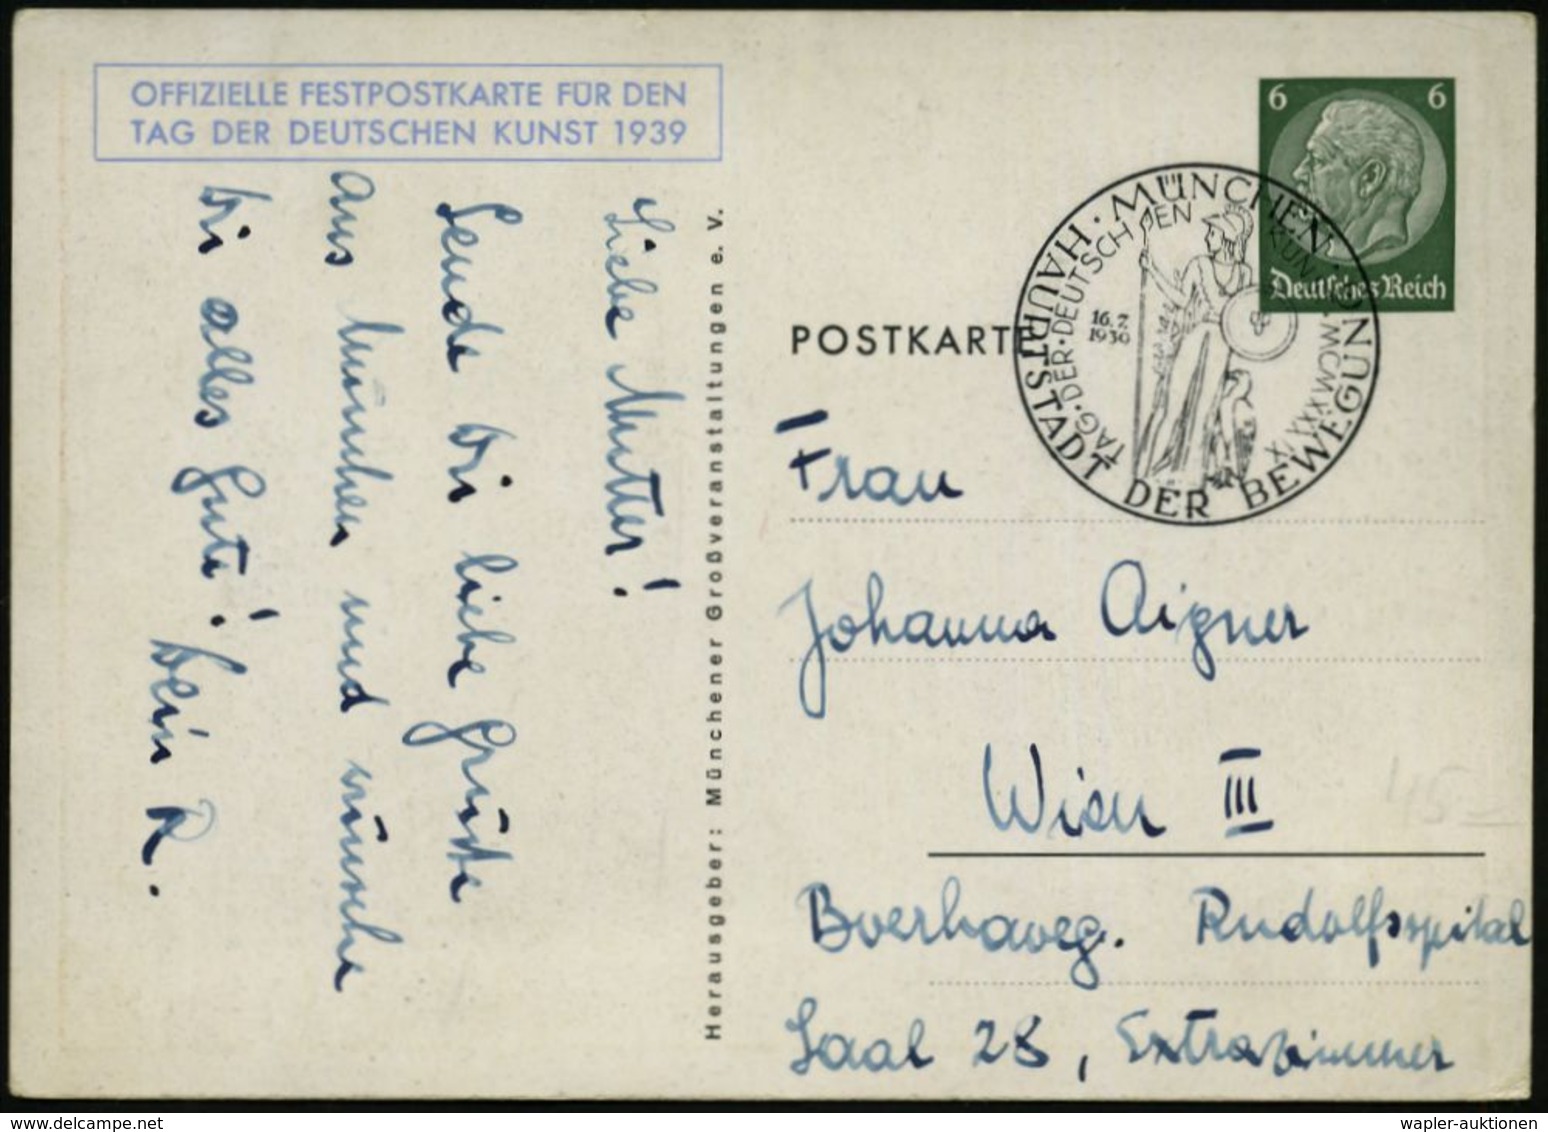 OFFIZIELLE FESTPOSTKARTE FÜR DEN
TAG DER DEUTSCHEN KUNST 1939
Liebe Mutter!
Sende Dir liebe Grüße
aus München und wünsche
Dir alles Gute!
Dein R.
Herausgeber: Münchener Großveranstaltungen e. V.
6 6
Deutsches Reich
MÜNCHEN · HAUPTSTADT DER BEWEGUNG
TAG·DER·DEUTSCHEN KUNST MCMXXXIX
16.7
1939
POSTKARTE
Frau
Johanna Aigner
Wien III
Boerhaveg. Rudolfsspital
Saal 28, Extrazimmer
45–
wapler-auktionen